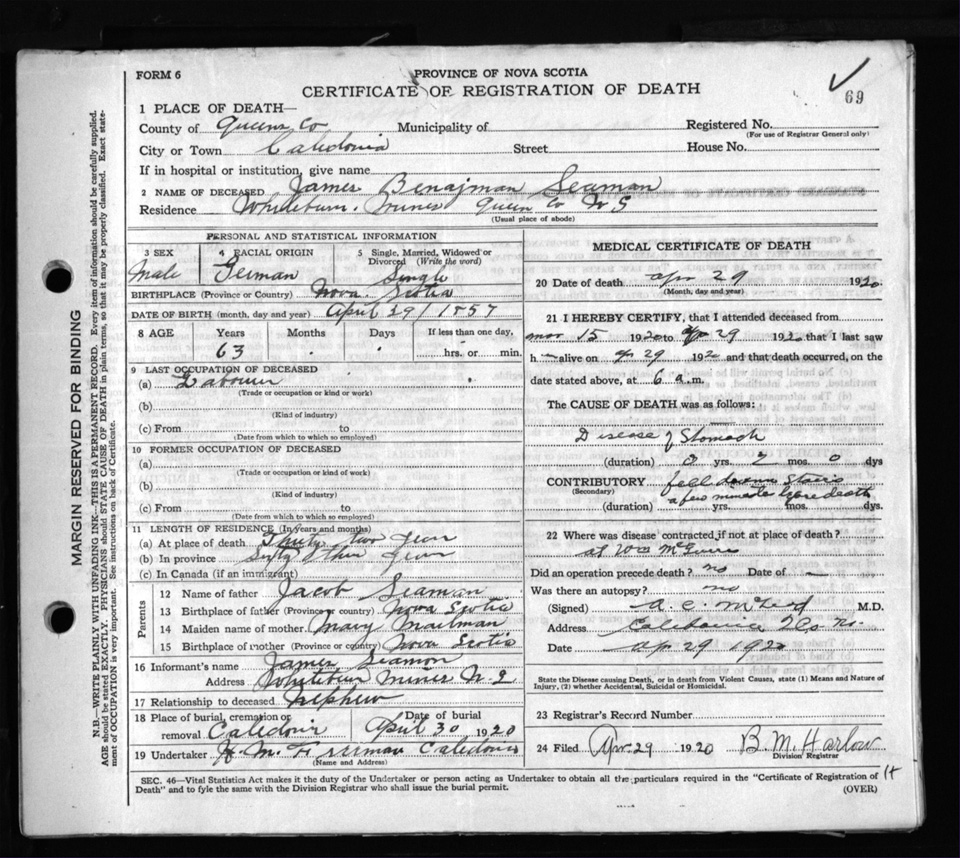 FORM 6
PROVINCE OF NOVA SCOTIA
CERTIFICATE OF REGISTRATION OF DEATH
69
1 PLACE OF DEATH—
County of Queens Co Municipality of Registered No.
(For use of Registrar General only)
City or Town Caledonia Street House No.
If in hospital or institution, give name
2 NAME OF DECEASED James Benajman Seaman
Residence Whiteburn Mines Queen Co N S
(Usual place of abode)
PERSONAL AND STATISTICAL INFORMATION
3 SEX Male
4 RACIAL ORIGIN German
5 Single, Married, Widowed or Divorced (Write the word) Single
BIRTHPLACE (Province or Country) Nova Scotia
DATE OF BIRTH (month, day and year) April 29 / 1857
8 AGE Years Months Days If less than one day,
63 . . hrs. or min.
9 LAST OCCUPATION OF DECEASED
(a) Labourer
(Trade or occupation or kind or work)
(b)
(Kind of industry)
(c) From to
(Date from which to which so employed)
10 FORMER OCCUPATION OF DECEASED
(a)
(Trade or occupation or kind of work)
(b)
(Kind of industry)
(c) From to
(Date from which to which so employed)
11 LENGTH OF RESIDENCE (In years and months)
(a) At place of death Thirty two year
(b) In province Sixty three year
(c) In Canada (if an immigrant)
Parents
12 Name of father Jacob Seaman
13 Birthplace of father (Province or country) Nova Scotia
14 Maiden name of mother Mary Mailman
15 Birthplace of mother (Province or country) Nova Scotia
16 Informant's name James Seamon
Address Whiteburn Mines N. S
17 Relationship to deceased Nephew
18 Place of burial, cremation or removal Caledonia Date of burial April 30 1920
19 Undertaker H. M. Freeman Caledonia
(Name and Address)
MEDICAL CERTIFICATE OF DEATH
20 Date of death apr 29 1920
(Month, day and year)
21 I HEREBY CERTIFY, that I attended deceased from
mar 15 1920 to ap 29 1920 that I last saw
h— alive on ap 29 1920 and that death occurred, on the
date stated above, at 6 a. m.
The CAUSE OF DEATH was as follows:
Disease of Stomach
(duration) 3 yrs. 2 mos. 0 dys
CONTRIBUTORY fell down stairs
(Secondary) a few minutes before death
(duration) yrs. mos. dys.
22 Where was disease contracted if not at place of death?
at Wm McGuire
Did an operation precede death? no Date of —
Was there an autopsy? no
(Signed) A. C. McLeod M.D.
Address Caledonia
Date ap 29 1920
State the Disease causing Death, or in death from Violent Causes, state (1) Means and Nature of
Injury, (2) whether Accidental, Suicidal or Homicidal.
23 Registrar's Record Number
24 Filed Apr. 29 1920 B. M. Harlow
Division Registrar
SEC. 46—Vital Statistics Act makes it the duty of the Undertaker or person acting as Undertaker to obtain all the particulars required in the "Certificate of Registration of
Death" and to fyle the same with the Division Registrar who shall issue the burial permit.
(OVER)
MARGIN RESERVED FOR BINDING
N.B.—WRITE PLAINLY WITH UNFADING INK—THIS IS A PERMANENT RECORD. Every item of information should be carefully supplied.
AGE should be stated EXACTLY. PHYSICIANS should STATE CAUSE OF DEATH in plain terms, so that it may be properly classified. Exact state-
ment of OCCUPATION is very important. See instructions on back of Certificate.